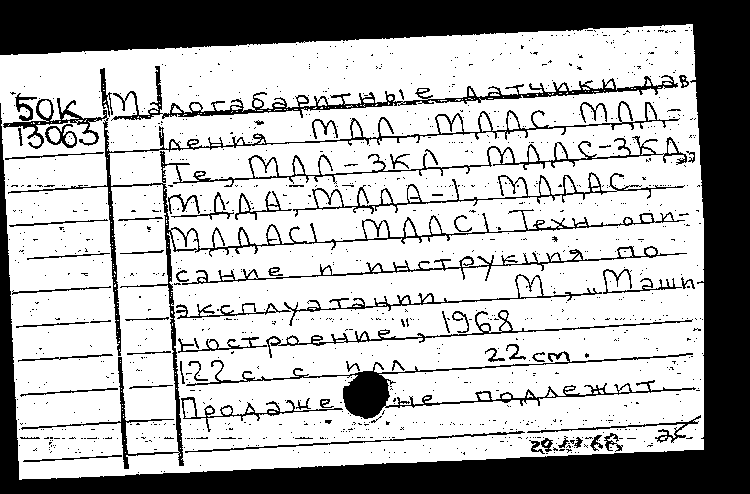 50К Малогабаритные датчики дав-
13063 ления МДД, МДДС, МДД-
Те, МДД-3КД, МДДС-3КД,
МДДА, МДДА-1, МДДАС,
МДДАС1, МДДС1. Техн. опи-
сание и инструкция по
эксплуатации. М., „Маши-
ностроение", 1968.
122 с. с илл. 22 cm.
Продаже не подлежит.